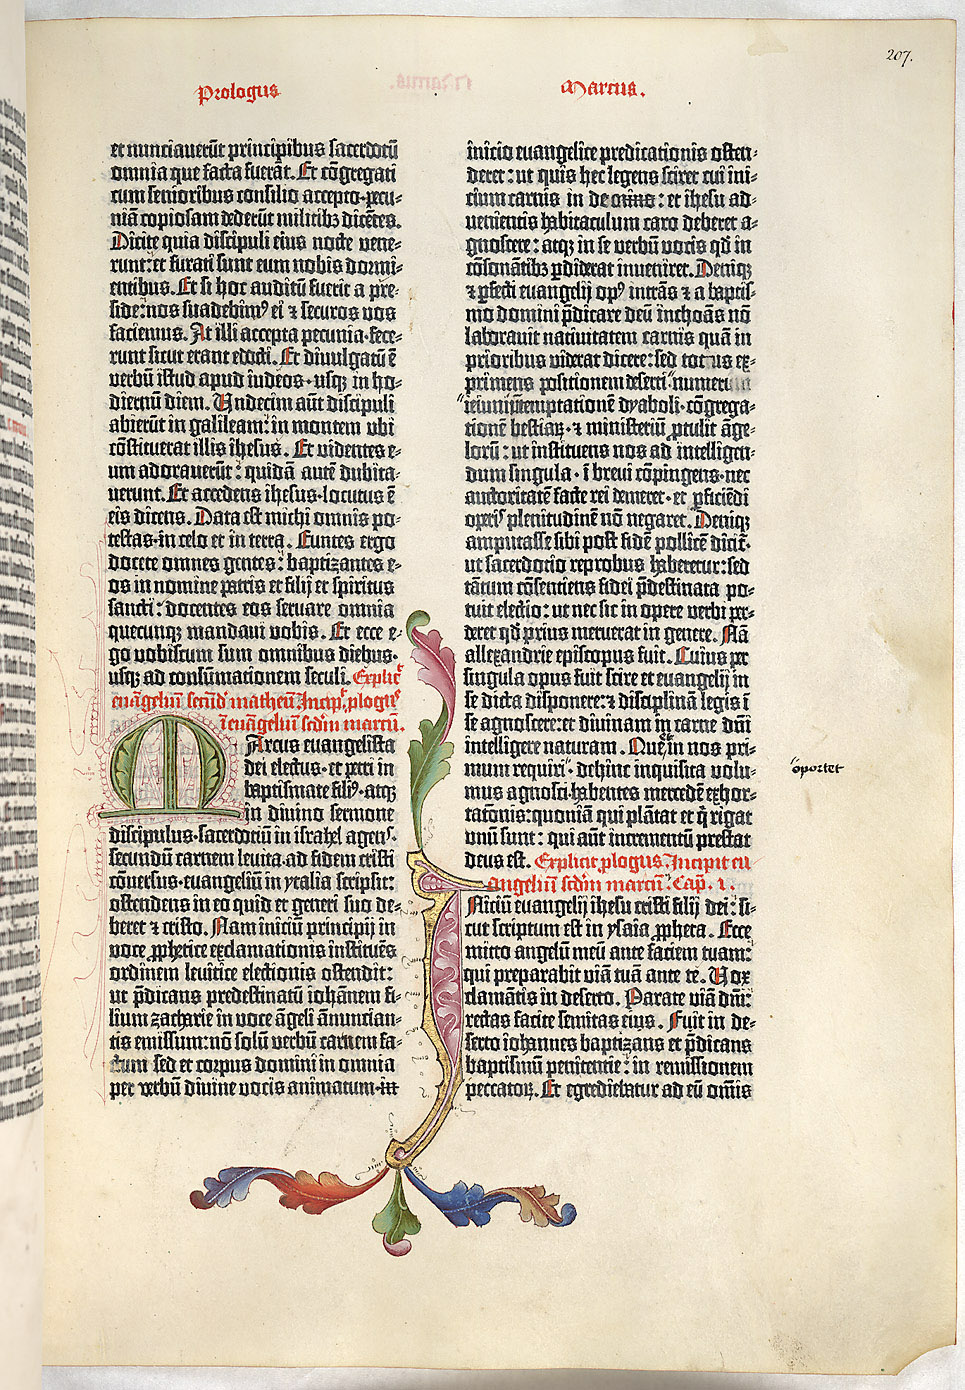 207.
Prologus
Marcus.
et nunciauerūt principibus sacerdotū
omnia que facta fuerāt. Et cōgregati
cum senioribus consilio accepto·pecu-
niā copiosam dederūt militibꝫ dicētes.
Dicite quia discipuli eius nocte vene-
runt: et furati sunt eum nobis dormi-
entibus. Et si hoc auditū fuerit a pre-
side: nos suadebimꝰ ei ⁊ securos vos
faciemus. At illi accepta pecunia·fece-
runt sicut erant edocti. Et divulgatū ē
verbū istud apud iudeos·usqꝫ in ho-
diernū diem. Undecim aūt discipuli
abierūt in galileam: in montem ubi
cōstituerat illis ihesus. Et videntes e-
um adorauerūt: quidā autē dubita-
uerunt. Et accedens ihesus·locutus ē
eis dicens. Data est michi omnis po-
testas·in celo et in terra. Euntes ergo
docete omnes gentes: baptizantes e-
os in nomine patris et filij et spiritus
sancti: docentes eos seruare omnia
quecunqꝫ mandaui vobis. Et ecce e-
go vobiscum sum omnibus diebus·
usqꝫ ad consūmationem seculi. Explic̄
euāgeliū secūdʼ matheū. Incip̄ ꝓlogꝰ
ī euāgeliū scdʼm marcū.
MArcus euangelista
dei electus·et petri in
baptismate filiꝰ·atqꝫ
in diuino sermone
discipulus·sacerdotiū in israhel agens·
secundū carnem leuita·ad fidem cristi
cōuersus·euangeliū in ytalia scripsit:
ostendens in eo quid et generi suo de-
beret ⁊ cristo. Nam iniciū principij in
voce ꝓphetice exclamationis instituēs
ordinem leuitice electionis ostendit:
ut p̄dicans predestinatū iohānem fi-
lium zacharie in voce āgeli ānuncian-
tis emissum: nō solū verbū carnem fa-
ctum sed et corpus domini in omnia
per verbū diuine vocis animatum·in
inicio euangelice predicationis osten-
deret: ut quis hec legens sciret cui ini-
cium carnis in deo omīo: et ihesu ad-
uenientis habitaculum caro deberet a-
gnoscere: atqꝫ in se verbū vocis qd̄ in
cōsonātibꝫ ꝑdiderat inueniret. Deniqꝫ
⁊ ꝑfecti euangelij opꝰ intrās ⁊ a baptis-
mo domini p̄dicare deū inchoās nō
laborauit natiuitatem carnis quā in
prioribus viderat dicere: sed totus ex-
primens positionem deserti numerum
ieiunij·temptationē dyaboli·cōgrega-
tionē bestiaꝝ·⁊ ministeriū ꝓtulit āge-
lorū: ut instituens nos ad intelligen-
dum singula·ī breui cōpingens·nec
auctoritatē facte rei demeret·et ꝑficiēdi
operis plenitudinē nō negaret. Deniqꝫ
amputasse sibi post fidē pollicē dicit̄·
ut sacerdotio reprobus haberetur: sed
tātum cōsentiens fidei p̄destinata po-
tuit electio: ut nec sic in opere verbi per-
deret qd̄ prius meruerat in genere. Nā
allexandrie episcopus fuit. Cuius per
singula opus fuit scire et euangelij in
se dicta disponere: ⁊ disciplinā legis ī
se agnoscere: et diuinam in carne dn̄i
intelligere naturam. Que in nos pri-
mum requiri·dehinc inquisita volu-
oportet
mus agnosci: habentes mercedē exhor-
tatōnis: quoniā qui plātat et q̄ rigat
unū sunt: qui aūt incrementū prestat
deus est. Explicit ꝓlogus. Incipit eu
angeliū scdʼm marcū. Cap. 1.
INiciū euangelij ihesu cristi filij dei: si-
cut scriptum est in ysaia ꝓpheta. Ecce
mitto angelū meū ante faciem tuam:
qui preparabit viā tuā ante te. Uox
clamātis in deserto. Parate viā dn̄i:
rectas facite semitas eius. Fuit in de-
serto iohannes baptizans et p̄dicans
baptismū penitentie: in remissionem
peccatoꝝ. Et egrediebatur ad eū om̄is